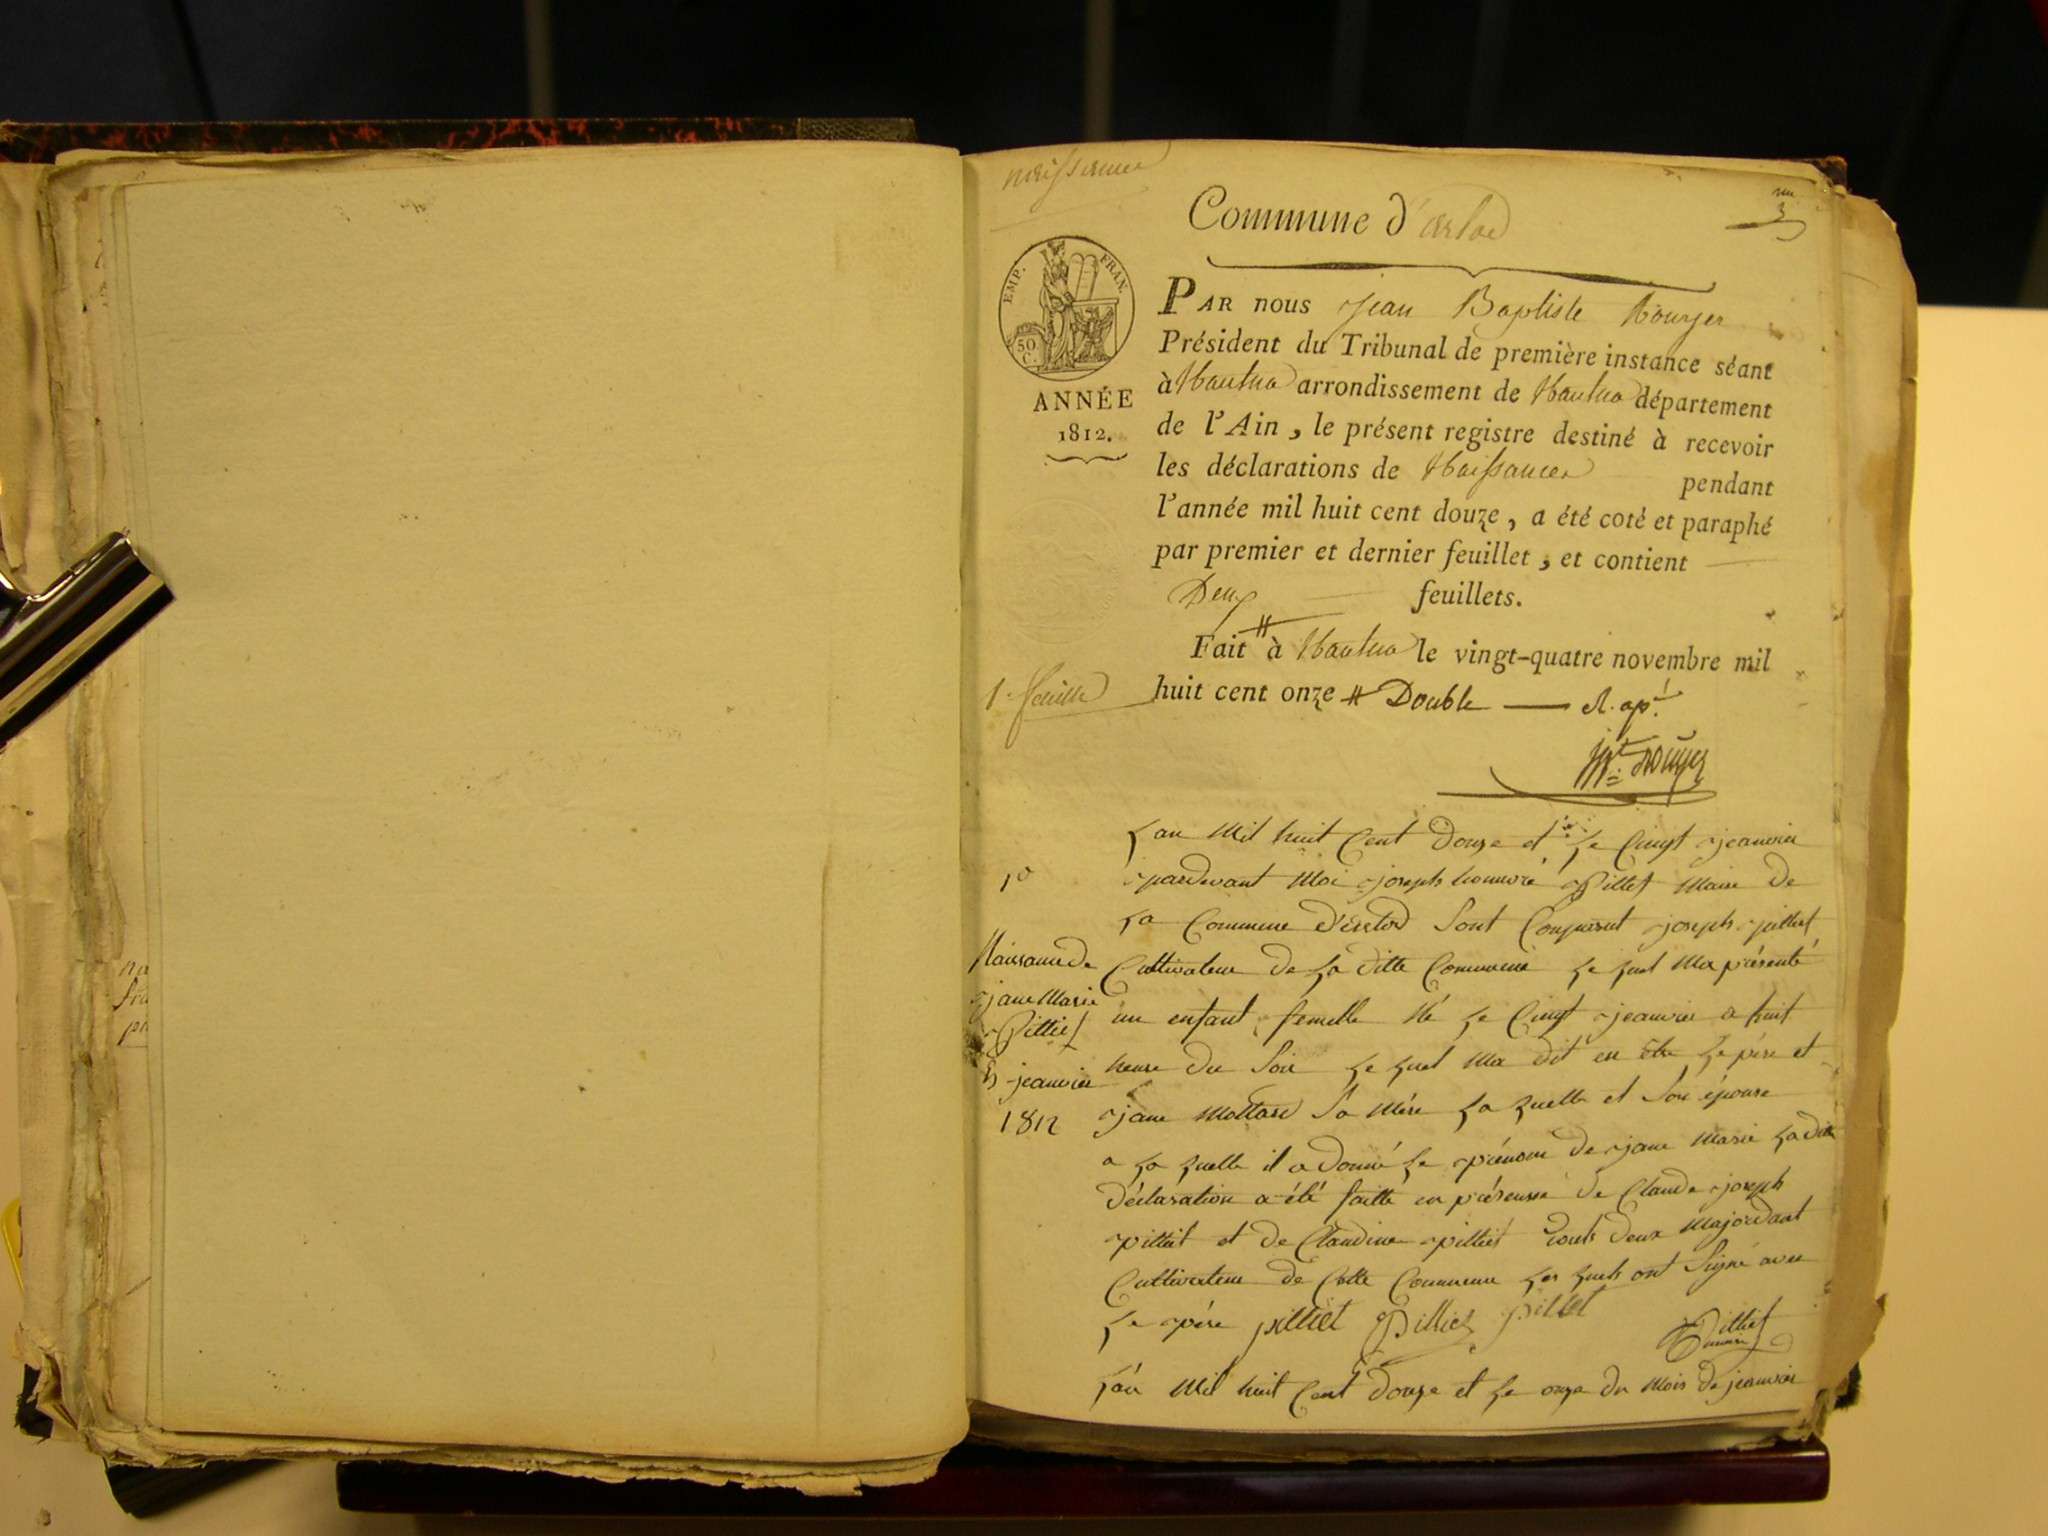 naissances
Commune d'arlod
3
EMP. FRAN.
50 C.
ANNÉE
1812.
PAR nous Jean Baptiste Rouyer
Président du Tribunal de première instance séant
à Nantua arrondissement de Nantua département
de l'Ain, le présent registre destiné à recevoir
les déclarations de Naissances pendant
l'année mil huit cent douze, a été coté et paraphé
par premier et dernier feuillet, et contient
Deux feuillets.
Fait à Nantua le vingt-quatre novembre mil
huit cent onze # Double — R. ap.
1. feuille
Rouyer
L'an Mil huit Cent Douze et Le Cinq jeanvier
pardevant Moi joseph honnoré Pilliet Maire de
La Commune d'arlod Sont Comparut joseph pilliet
Cultivateur de La ditte Commune Le quel Ma présenté
un enfant femelle Né Le Cinq jeanvier a huit
heure du Soir Le quel Ma dit en Etre Le père et
jane Mottard Sa Mére La quelle et Son épouse
a La quelle il a Donné Le prénom de jane Marie La ditte
déclaration a été faitte en présensse de Claude joseph
pilliet et de Claudine pilliet touts deux Majordant
Cultivateur de Cette Commune Les quels ont Signé avec
Le père pilliet Pilliet pilliet
Pilliet
maire
1o
Naisance de
jane Marie
Pilliet
5 jeanvier
1812
L'an Mil huit Cent Douze et Le onze du Mois de jeanvier